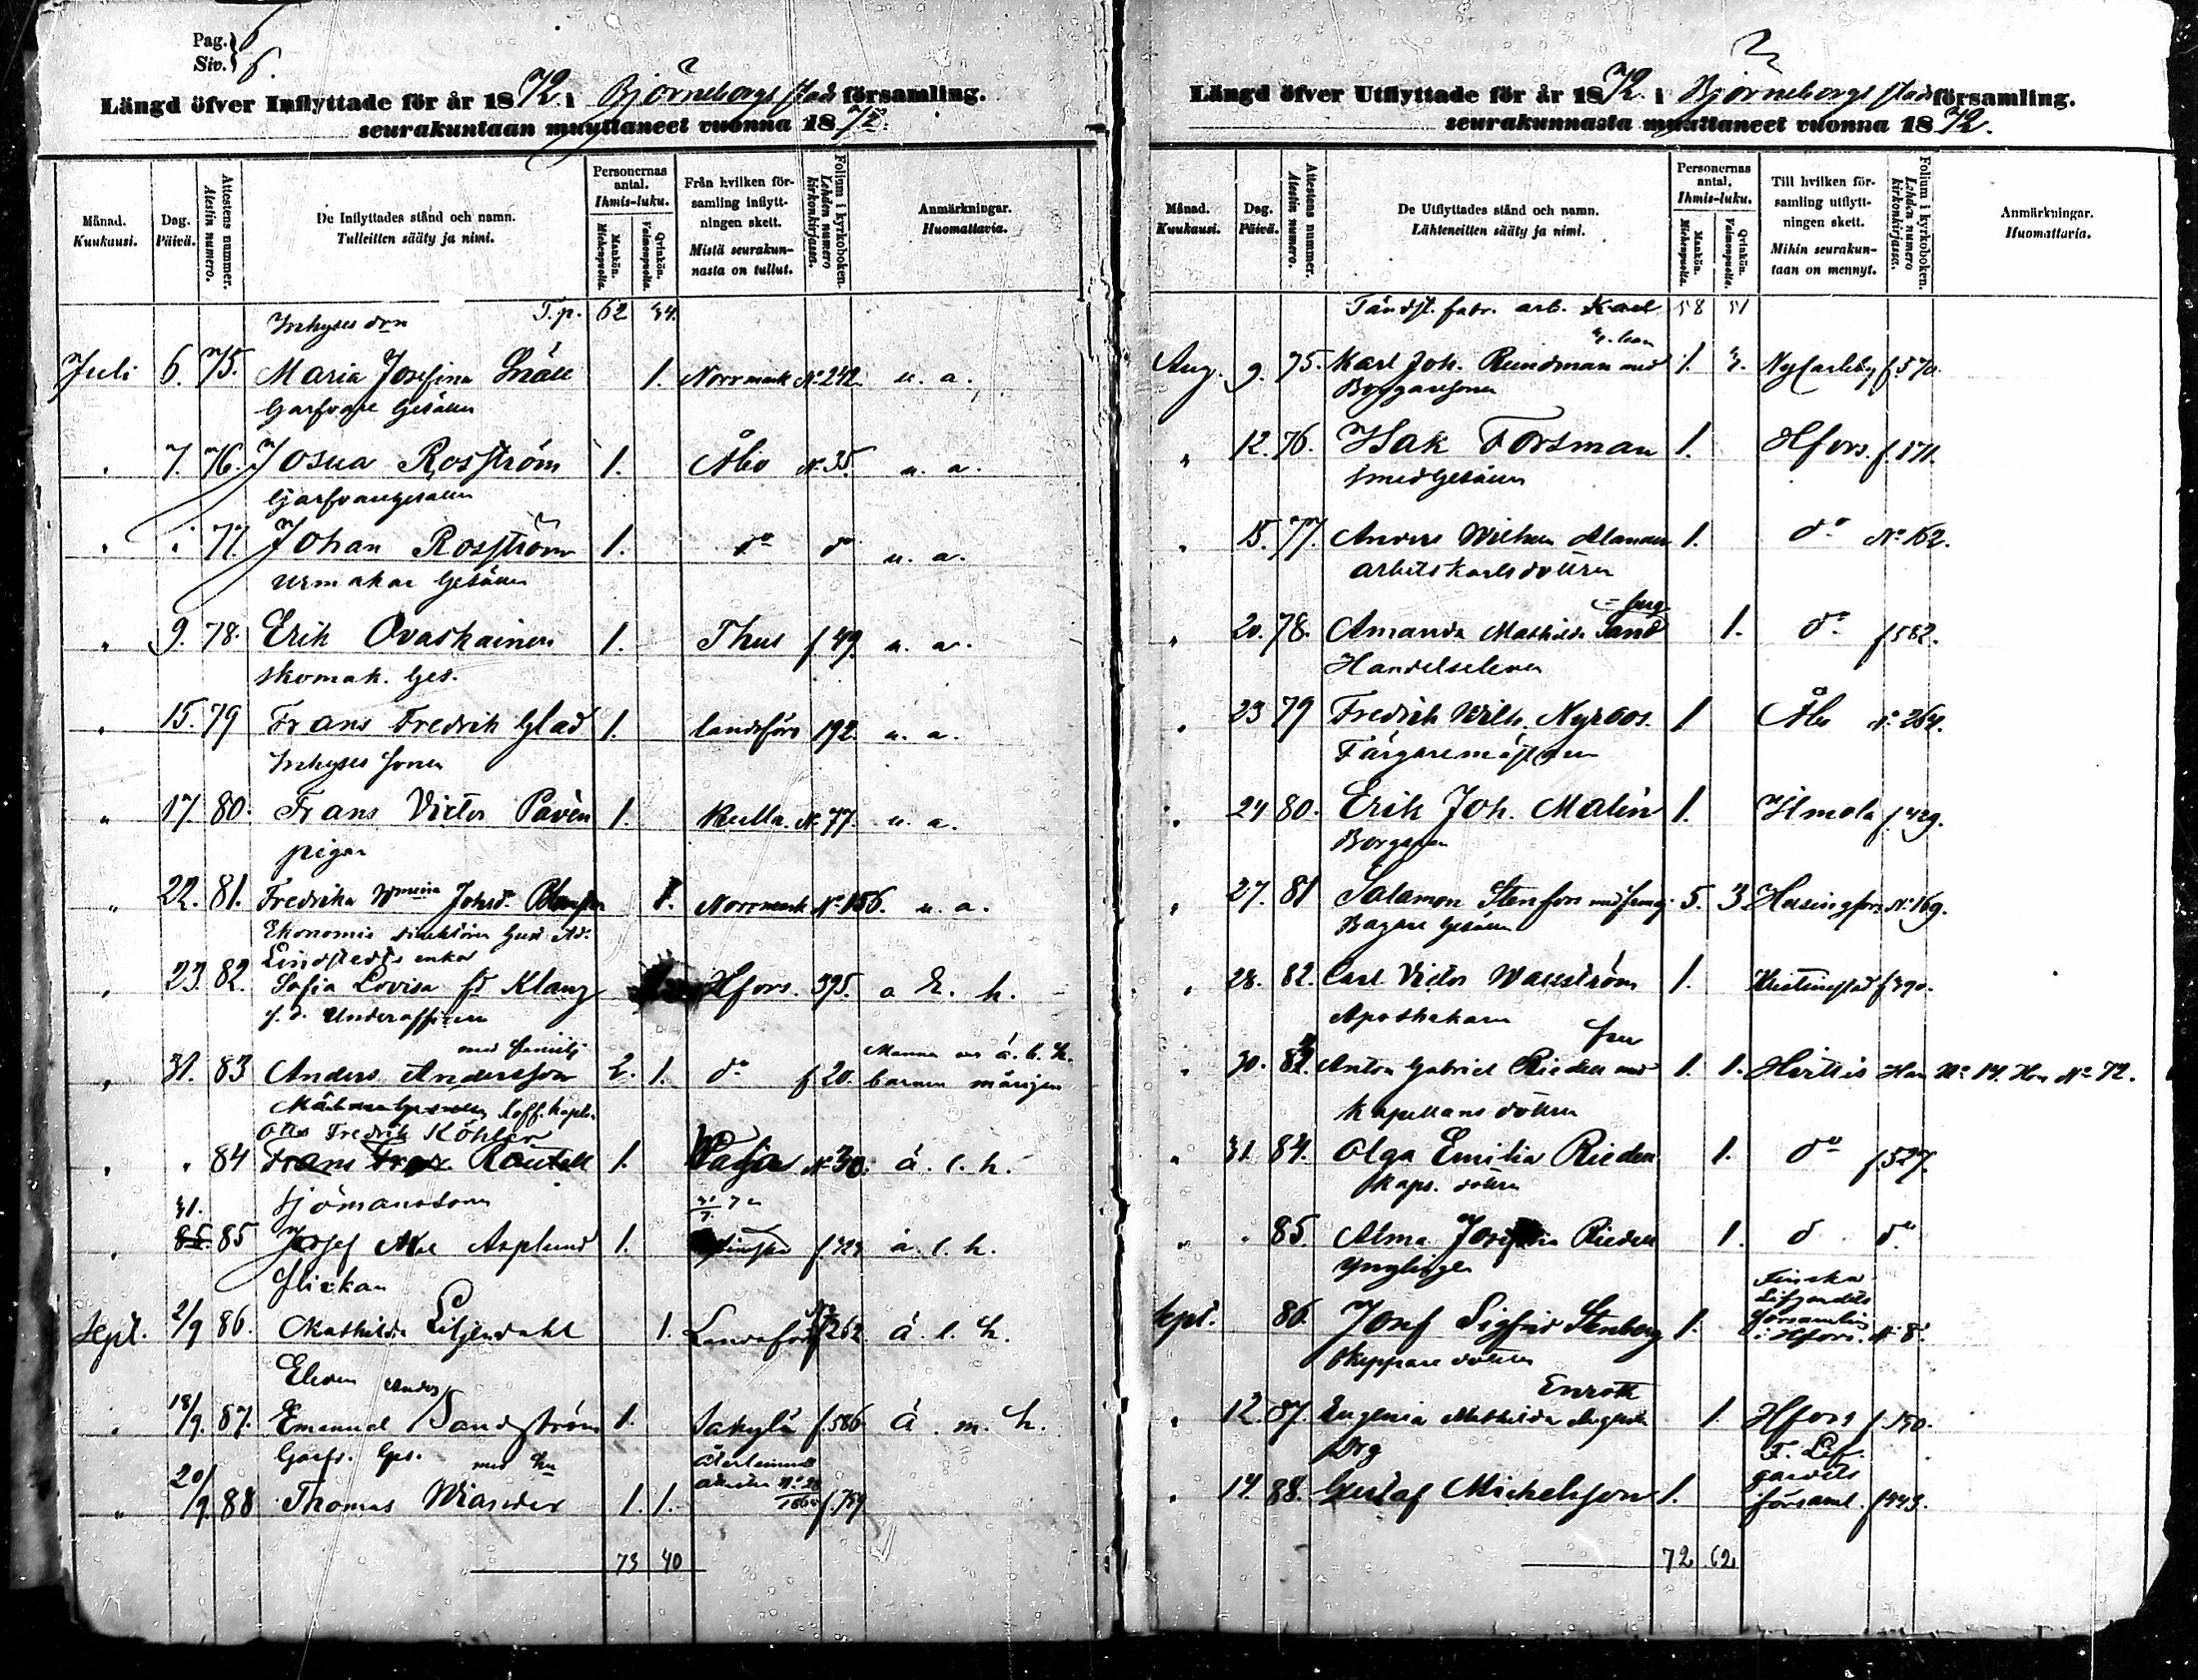 Pag. 6
Siv. 6.
Längd öfver Inflyttade för år 1872 i Björneborgs stads församling.
seurakuntaan muuttaneet vuonna 1872.
Månad. Kuukausi.
Dag. Päivä.
Attestens nummer. Atestin numero.
De Inflyttades stånd och namn. Tulleitten sääty ja nimi.
Personernas antal. Ihmis-luku.
Mankön. Miehenpuolta.
Qvinkön. Vaimonpuolta.
Från hvilken församling inflyttningen skett. Mistä seurakunnasta on tullut.
Folium i kyrkoboken. Lehden numero kirkonkirjassa.
Anmärkningar. Huomattavia.
T.p. 62 34.
Inhyses drn
Juli 6. 75. Maria Josefina Snäll 1. Norrmark No 242. u. a.
Garfvare Gesällen
" 7. 76. Josua Rosström 1. Åbo N. 35. u. a.
Garfvaregesällen
" " 77. Johan Rosström 1. do do u. a.
Urmakar Gesällen
" 9. 78. Erik Ovaskainen 1. Thus f 49. u. a.
Skomak. Ges.
" 15. 79 Frans Fredrik Glad 1. landsförs 192. u. a.
Inhyses sonen
" 17. 80. Frans Victor Pavén 1. Kulla N. 77. u. a.
pigan
" 22. 81. Fredrika Wmina Johsdr 1. Norrmark No 156. u. a.
Ekonomie direktören Gust. Ad.
Lindstedts enka
" 23. 82. Sofia Lovisa fd Klang Hfors. 395. a. h.
f. d. Underofficeren
med familj
" 31. 83 Anders Andersson 2. 1. do f 20. barnen
Otto Fredrik Köhler
" " 84 Frans 1. N. 30. á. l. h.
31. Sjömanssonen
" 85 Josef Asplund 1. á. l. h.
flickan
Sept. 2/9 86. Mathilda Liljendahl 1. Landsförs 262. á. l. h.
Eleven
" 18/9. 87. Emanuel Sandström 1. Sakylä f. 586 á. m. h.
Garfv. Ges. med
" 20/9. 88 Thomas Wiander 1. 1. f. 759
73 40
Längd öfver Utflyttade för år 1872 i Björneborgs stads församling.
seurakunnasta muuttaneet vuonna 1872.
Månad. Kuukausi.
Dag. Päivä.
Attestens nummer. Atestin numero.
De Utflyttades stånd och namn. Lähteneitten sääty ja nimi.
Personernas antal. Ihmis-luku.
Mankön. Miehenpuolta.
Qvinkön. Vaimonpuolta.
Till hvilken församling utflyttningen skett. Mihin seurakuntaan on mennyt.
Folium i kyrkoboken. Lehden numero kirkonkirjassa.
Anmärkningar. Huomattavia.
Tändst. fabr. arb. Karl 58 51
Aug. 9. 75. Karl Joh. Rundman med 1. Nycarleby f. 570.
" 12. 76. Isak Forsman 1. Hfors. f. 171.
Smedgesällen
" 15. 77. Anders Wilhelm Alander 1. do No 162.
Arbetskarlsdottren
berg
" 20. 78. Amanda Mathilda Sand 1. do f 582.
Handelseleven
" 23 79 Fredrik Wilh. Nyroos. 1 Åbo N. 264.
Färgaremästaren
" 24 80. Erik Joh. Malin 1. Ilmola f. 429.
Borgaren
" 27. 81 Salomon Stenfors med familj 5. 3 Helsingfors N. 169.
Bagare Gesällen
" 28. 82. Carl Victor Wassström 1. Kristinestad f 390.
Apothekaren
fru
" 30. 83. Anton Gabriel Riedell med 1. 1. Hvittis Han No 14. Hon No 72.
Kapellans dottren
" 31. 84. Olga Emilia Riedell 1. do f. 527.
Kapl. dottren
" " 85. Alma Josefina Riedell 1. do do
Ynglingen
Finska
Lifgardets
församling
Sept. 86. Josef Sigfrid Stenberg 1. i Hfors. N. 8.
Skeppare dottren
Enroth
" 12. 87. Eugenia Mathilda Augusta 1. Hfors f. 150.
Drg
F. Lif-
gardets
" 14. 88. Gustaf Michelsson 1. församl. f 443.
72 62